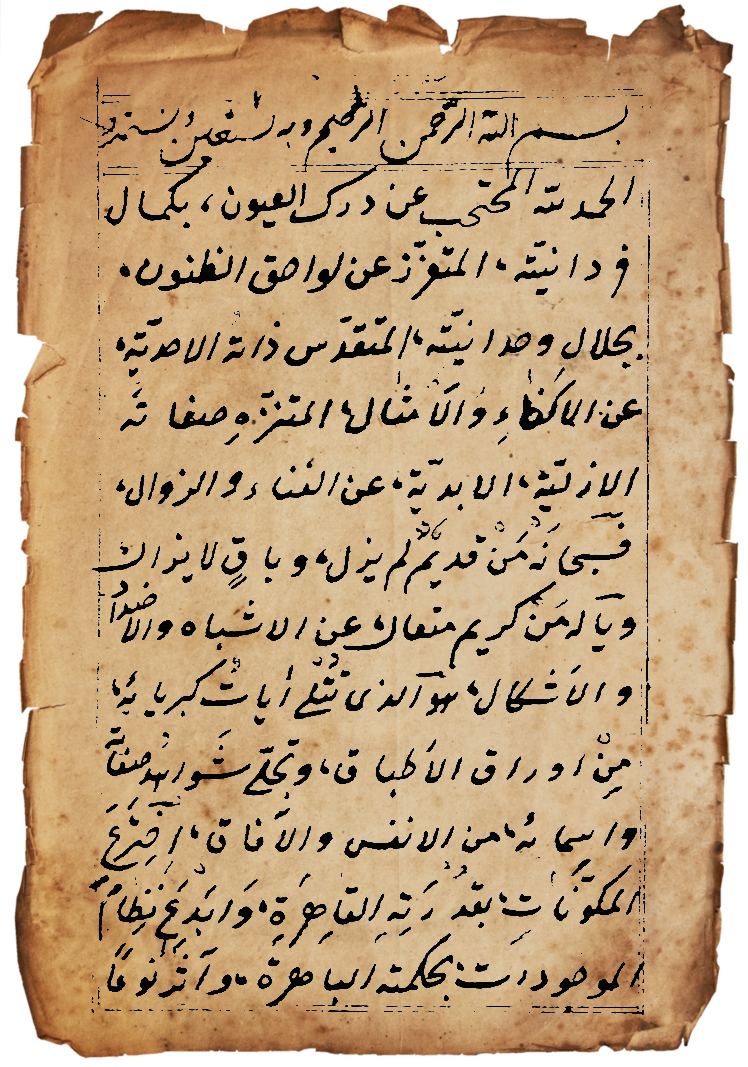 بسم الله الرحمن الرحيم وبه نستعين
الحمد لله المحتجب عن درك العيون، بكمال
فردانيّته، المتعزّز عن لواحق الظنون،
بجلالِ وحدانيّته، المتقدّس ذاته الاحديّة،
عن الاكفاءِ والاَمثال، المتنزّهِ صفاتَه
الازليّة، الابديّة، عن الفناء والزوال،
فسبحانَه مَنْ قديمٌ لم يزل، وباقٍ لا يزال
وياله مَنْ كريم متعال عن الاشباه والاضداد
والاَشكال، هو الذى تُتلى اٰيات كبريائهِ،
مِنْ اوراق الاَطباق، وتجلّى شواهد صفاته
واسمائه، من الانفس والآفاق، اِخترَعَ
المكوّنات، بقدرَتِهِ القاهِرَةِ، وَابَدَعَ نظاماً
الموجودات، بحكمته الباهرة، وآثر نوعاً